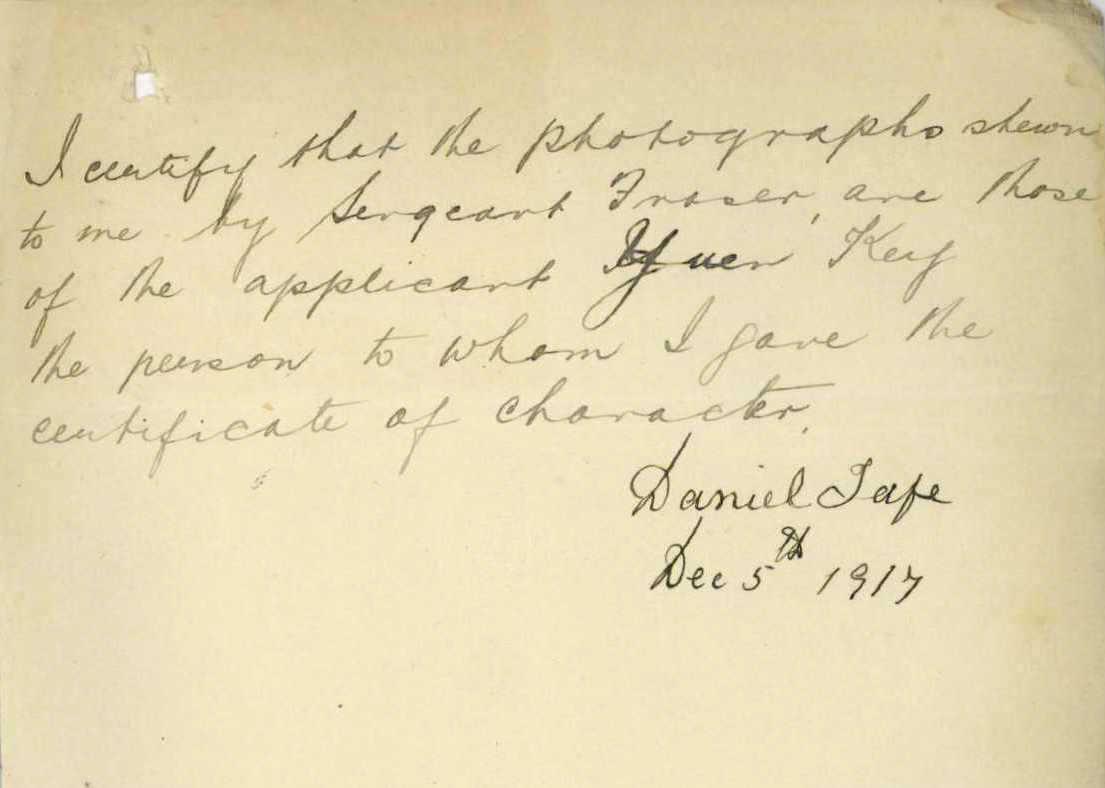 I certify that the photographs shewn
to me by Sergeant Fraser, are those
of the applicant Yuen Key
the person to whom I gave the
certificate of character.
Daniel Tape
Dec 5th 1917